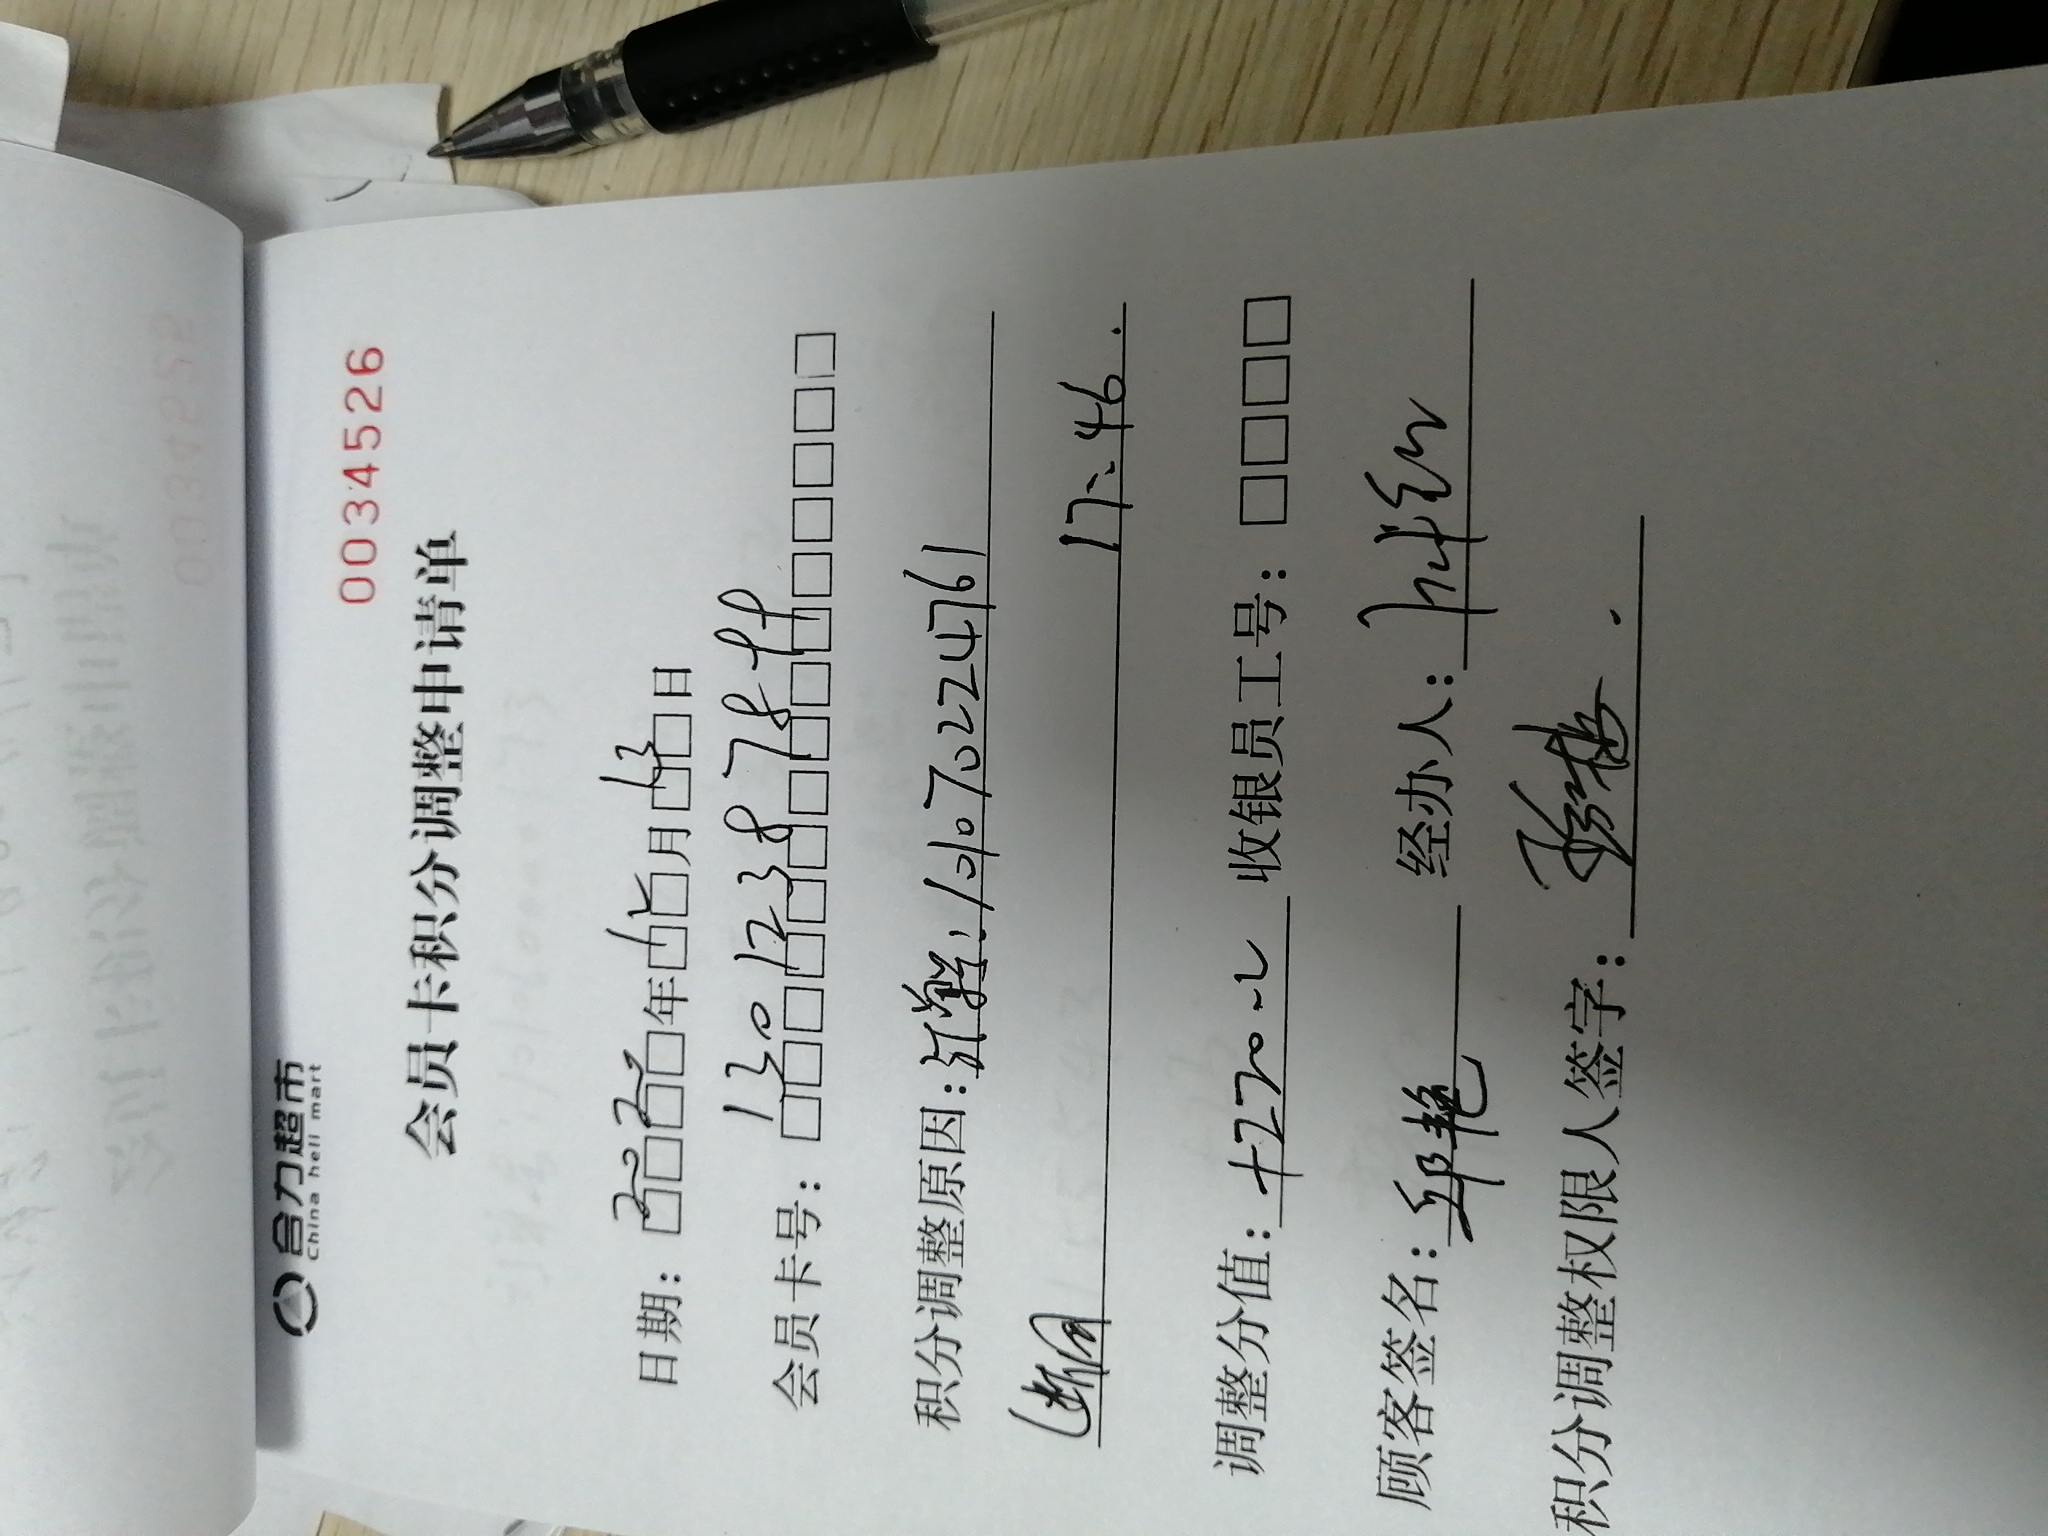 合力超市
China heli mart
0034526
会员卡积分调整申请单
日期：2022年12月13日
会员卡号：13012387899
积分调整原因：订单：101070224761
断网 17:46.
调整分值：+220.2 收银员工号：□□□□
顾客签名：邱艳 经办人：
积分调整权限人签字：